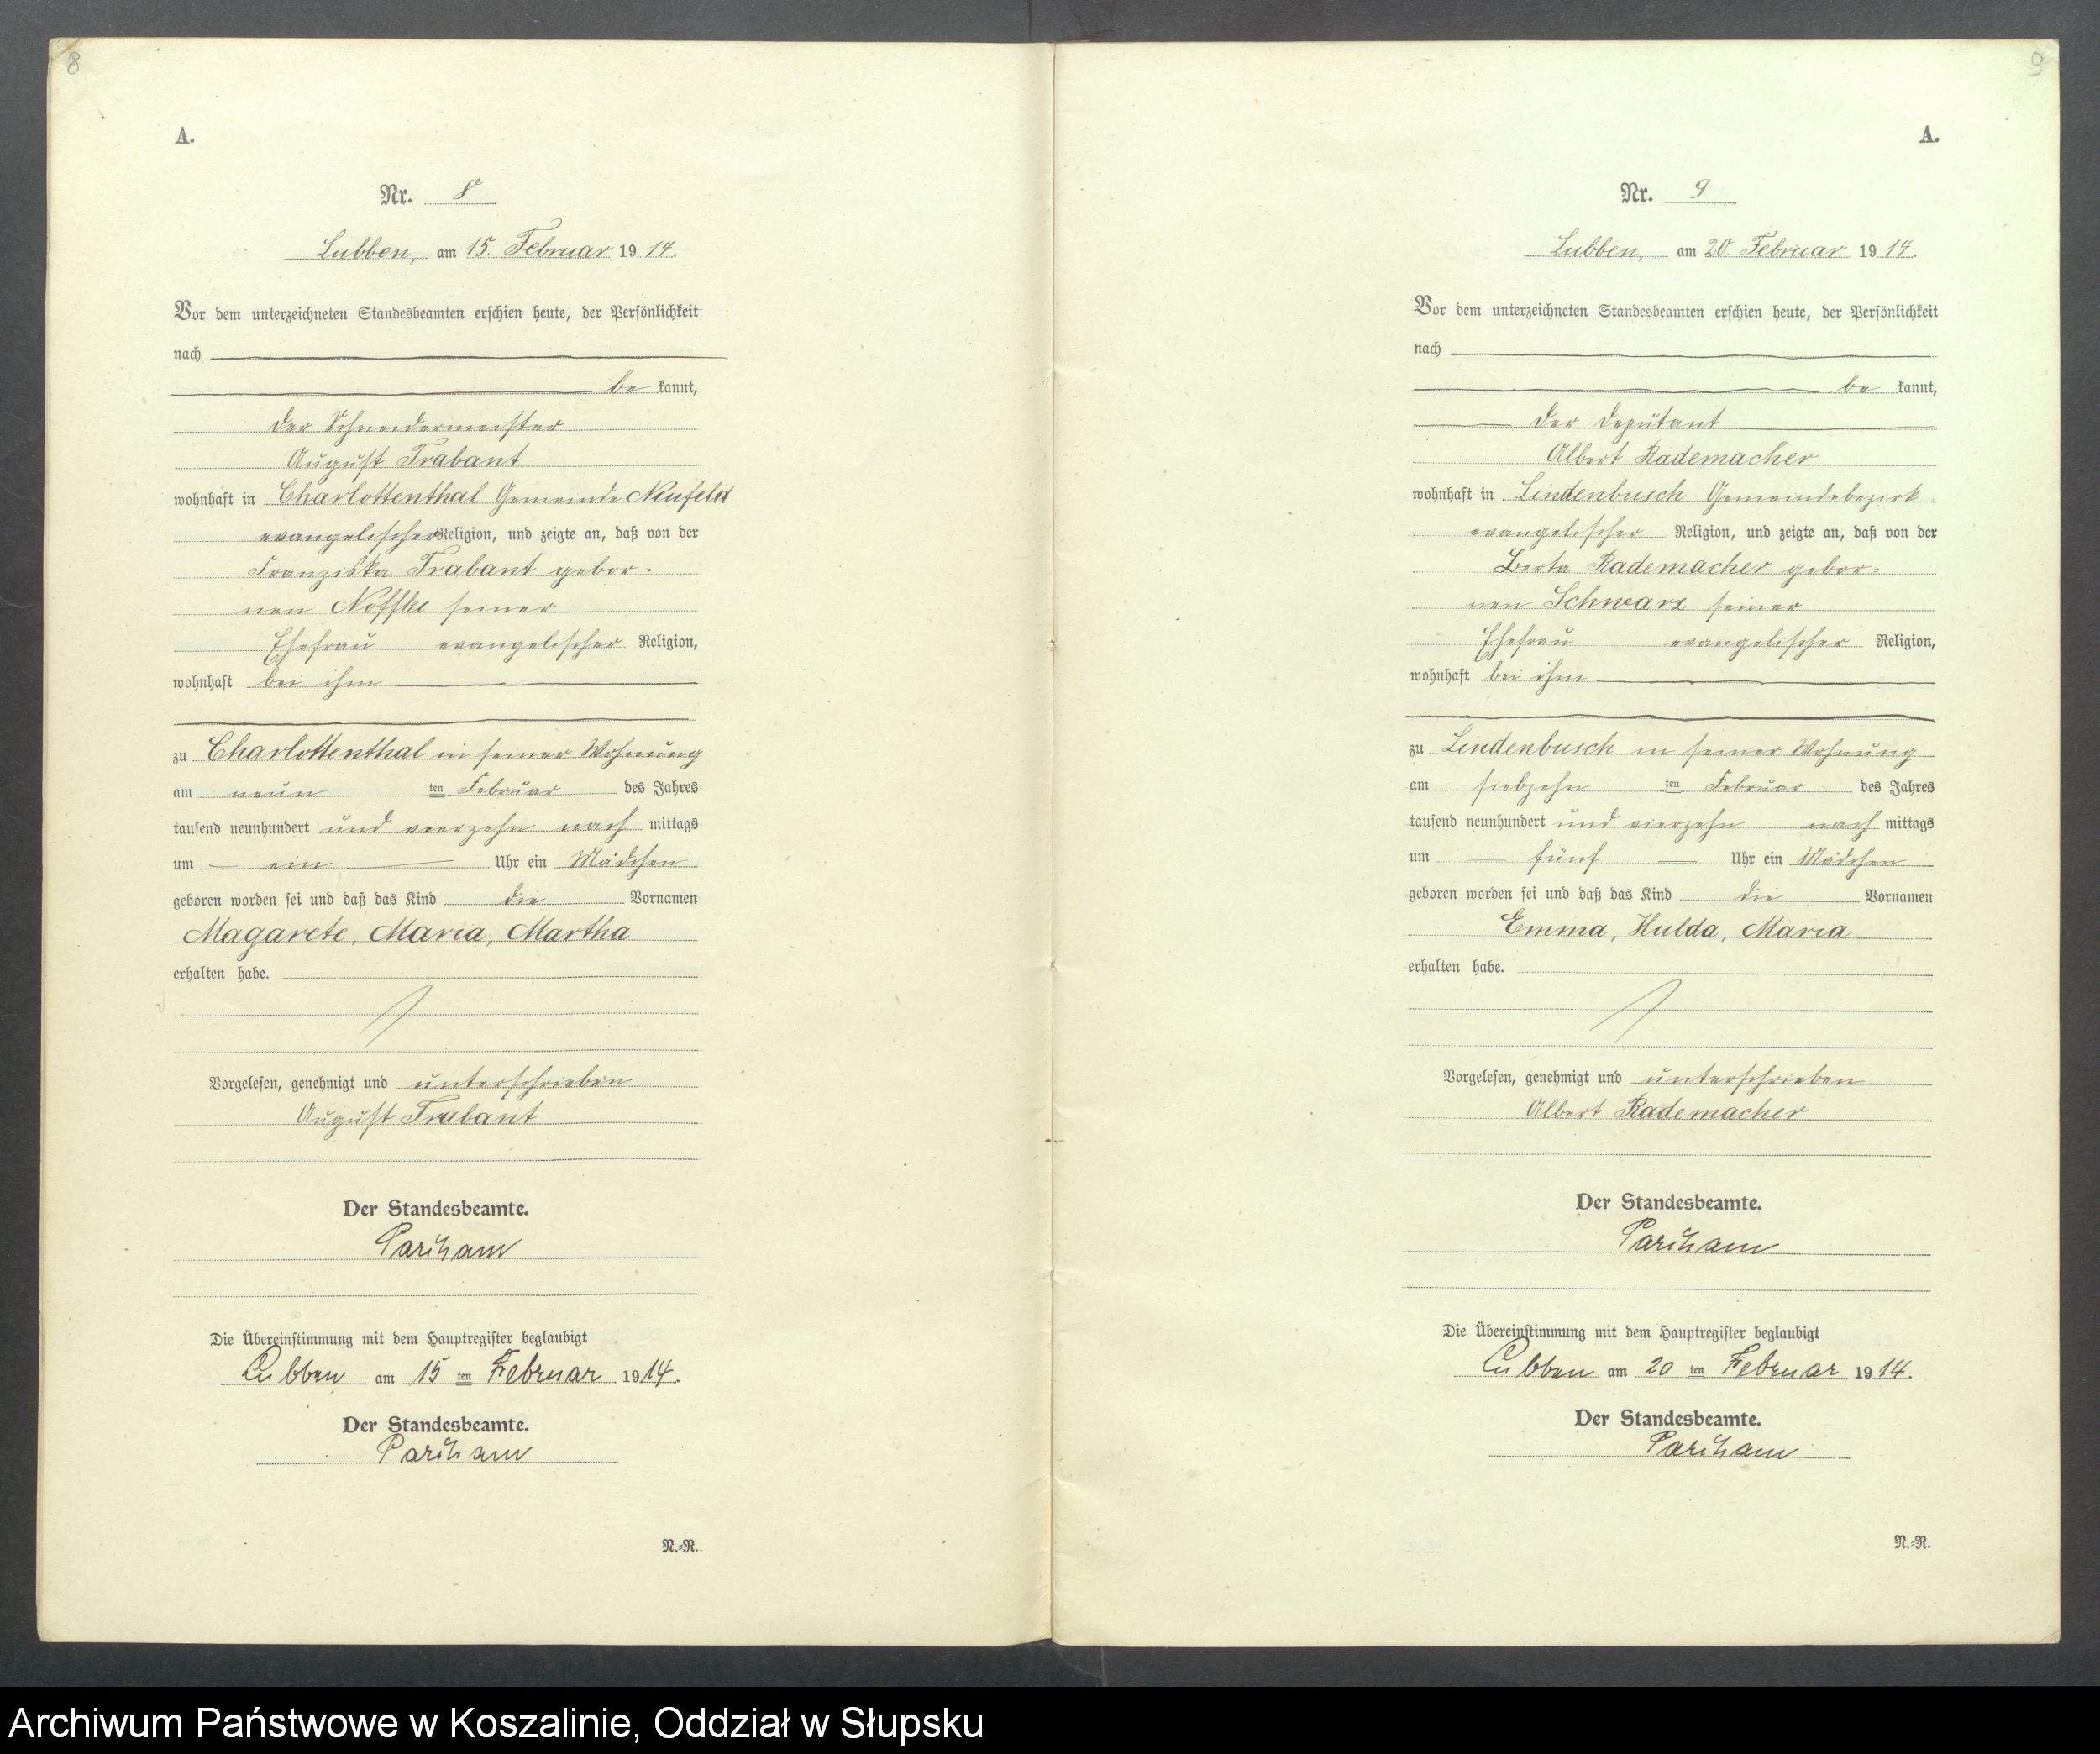 8
A.
Nr. 8
Lubben, am 15. Februar 1914.
Vor dem unterzeichneten Standesbeamten erschien heute, der Persönlichkeit
nach
be kannt,
der Schneidermeister
August Trabant
wohnhaft in Charlottenthal Gemeinde Neufeld
evangelischer Religion, und zeigte an, daß von der
Franziska Trabant gebor-
nen Noffke seiner
Ehefrau evangelischer Religion,
wohnhaft bei ihm
zu Charlottenthal in seiner Wohnung
am neun ten Februar des Jahres
tausend neunhundert und vierzehn nach mittags
um ein Uhr ein Mädchen
geboren worden sei und daß das Kind die Vornamen
Magarete, Maria, Martha
erhalten habe.
Vorgelesen, genehmigt und unterschrieben
August Trabant
Der Standesbeamte.
Die Übereinstimmung mit dem Hauptregister beglaubigt
Lubben am 15 ten Februar 1914.
Der Standesbeamte.
N.-R.
9
A.
Nr. 9
Lubben, am 20. Februar 1914.
Vor dem unterzeichneten Standesbeamten erschien heute, der Persönlichkeit
nach
be kannt,
der Deputant
Albert Rademacher
wohnhaft in Lindenbusch Gemeindebezirk
evangelischer Religion, und zeigte an, daß von der
Berta Rademacher gebor-
nen Schwarz seiner
Ehefrau evangelischer Religion,
wohnhaft bei ihm
zu Lindenbusch in seiner Wohnung
am siebzehn ten Februar des Jahres
tausend neunhundert und vierzehn nach mittags
um fünf Uhr ein Mädchen
geboren worden sei und daß das Kind die Vornamen
Emma, Hulda, Maria
erhalten habe.
Vorgelesen, genehmigt und unterschrieben
Albert Rademacher
Der Standesbeamte.
Die Übereinstimmung mit dem Hauptregister beglaubigt
Lubben am 20 ten Februar 1914.
Der Standesbeamte.
N.-R.
Archiwum Państwowe w Koszalinie, Oddział w Słupsku